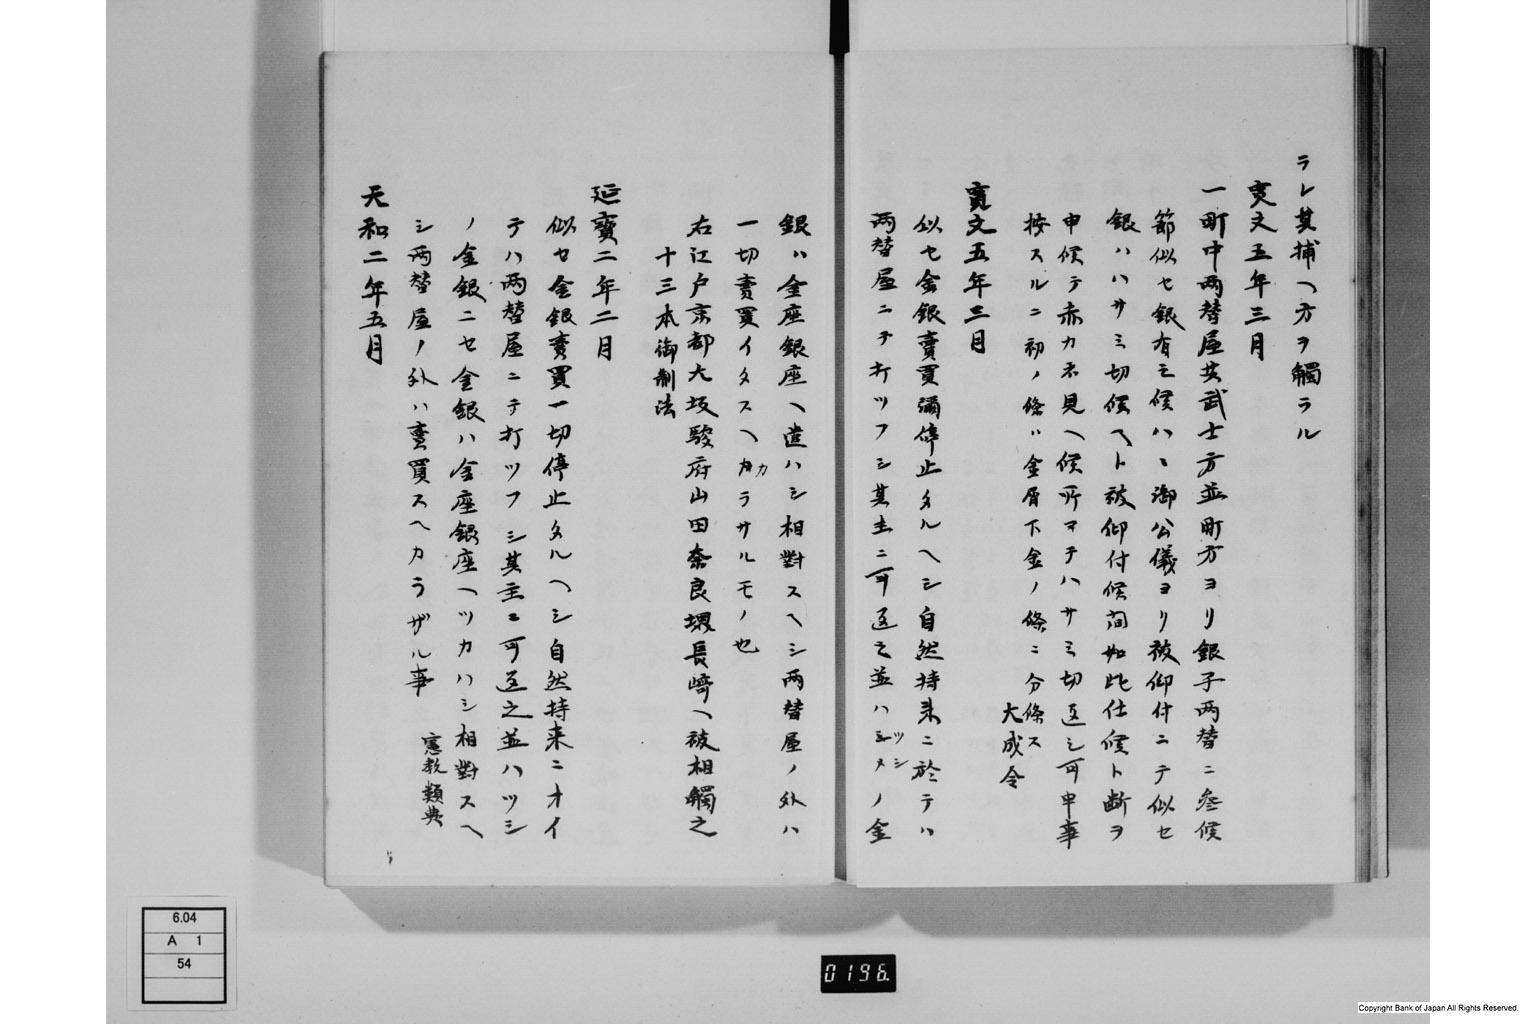 ラレ其捕ヘ方ヲ觸ラル
寛文五年三月
一町中両替屋其武士方並町方ヨリ銀子両替ニ參候
節似セ銀有之候ハヽ御公儀ヨリ被仰付ニテ似セ
銀ハハサミ切候ヘト被仰付候間如此仕候ト断ヲ
申候テ赤カネ見ヘ候所マテハサミ切返シ可申事
按スルニ初ノ條ハ金屑下金ノ條ニ分條ス
大成令
寛文五年三月
似セ金銀賣買彌停止タルヘシ自然持来ニ於テハ
両替屋ニテ打ツフシ其主ニ可返之並ハシタノ金
ツシ
銀ハ金座銀座ヘ遣ハシ相對スヘシ両替屋ノ外ハ
一切賣買イタスヘカラサルモノ也
カ
右江戸京都大坂駿府山田奈良堺長崎ヘ被相觸之
十三本御制法
延寶二年二月
似セ金銀賣買一切停止タルヘシ自然持来ニオイ
テハ両替屋ニテ打ツフシ其主ニ可返之並ハツシ
ノ金銀ニセ金銀ハ金座銀座ヘツカハシ相對スヘ
シ両替屋ノ外ハ賣買スヘカラザル事
憲教類典
天和二年五月
6.04
A 1
54
0196
Copyright Bank of Japan All Rights Reserved.